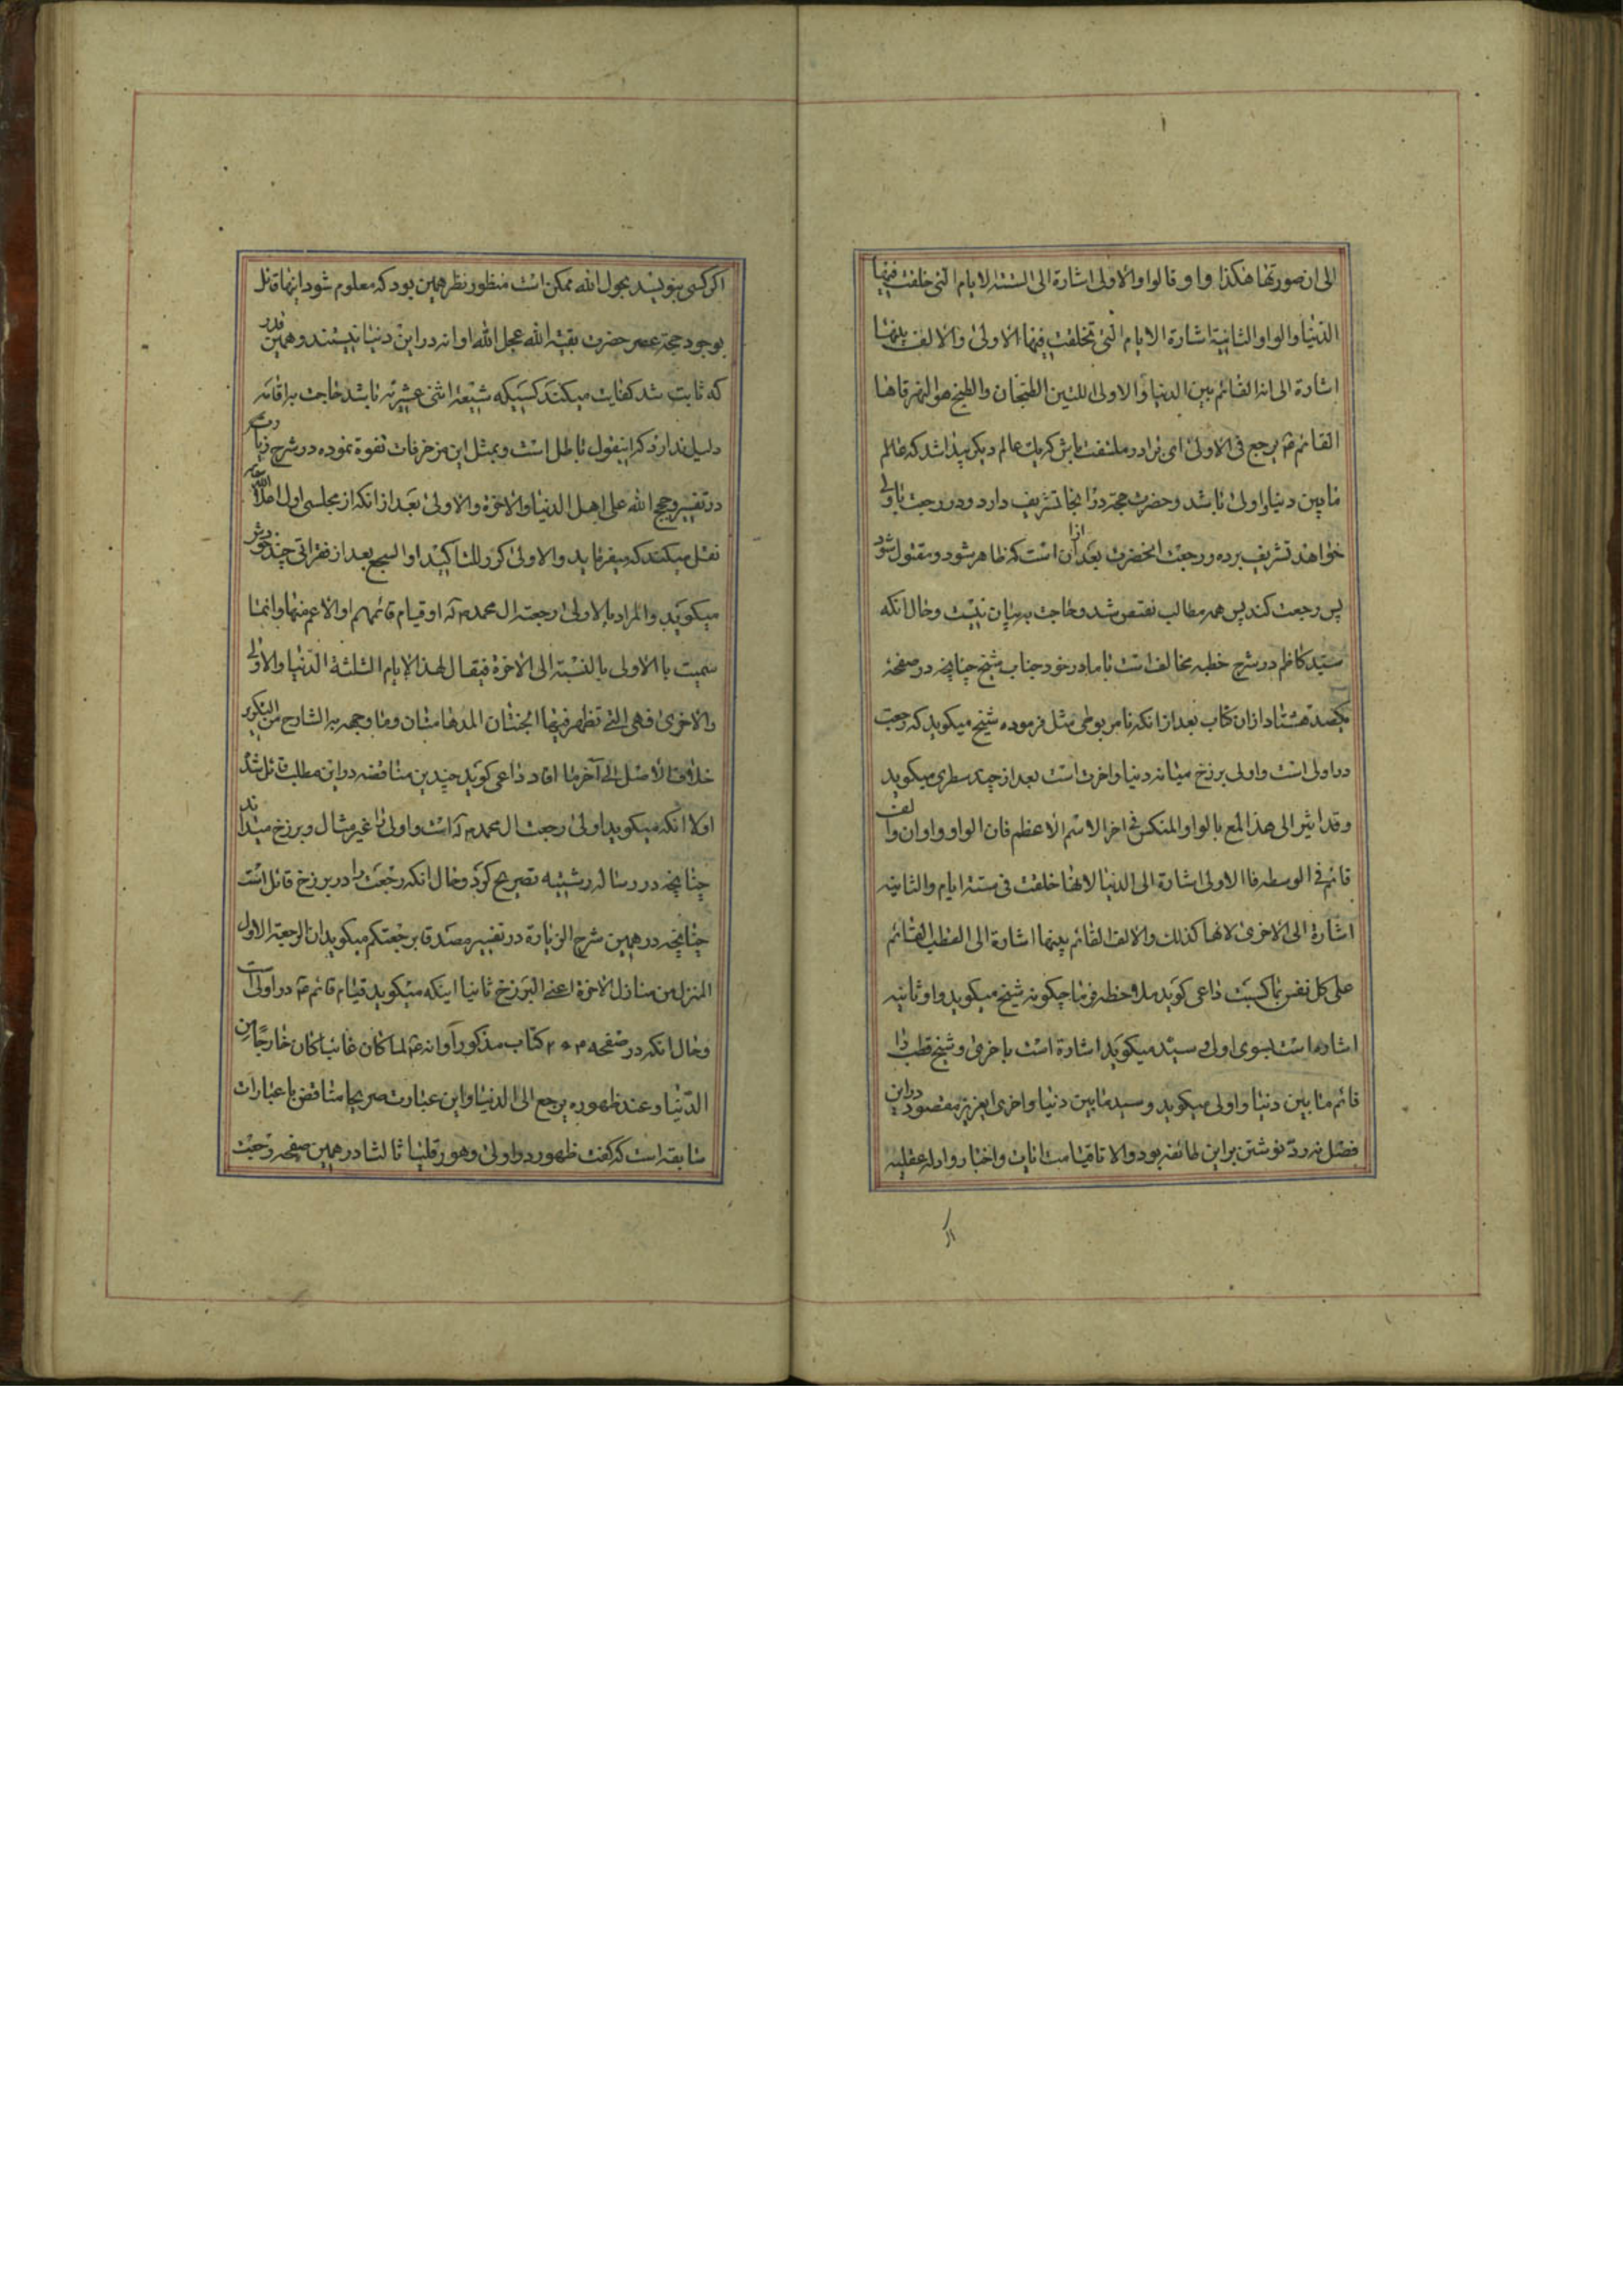 الی ان صورتها هکذا واو قالوا والاولی اشارة الی الستة الایام التی خلقت فیها
الدنیا والواو الثانیة اشارة الایام التی تخلقت فیها الاولی والالف بینهما
اشارة الی انه القائم بین الدنیا والاولی اللتین الطتنجان والطتنج هو النهر قاها
القائم ع یرجع فی الاولی ای برادر ملتفت باش که یك عالم دیکر پیدا شد که عالم
مابین دنیا و اولی باشد و حضرت حجة در انجا تشریف دارد و در رجعت باولی
خواهند تشریف برد و رجعت انحضرت بعد از ان است که ظاهر شود و مقتول شود
پس رجعت کند پس همه مطالب نقیض شد و حاجت به بیان نیست و حال انکه
سید کاظم در شرح خطبه مخالف است باما در خود جناب شیخ چنانچه در صفحهٔ
یکصد هشتاد از ان کتاب بعد از انکه نامربوطی مثل فرموده شیخ میکوید که رجعت
در اولی است و اولی برزخ میانه دنیا و اخرت است بعد از چند سطری میکوید
وقد اشیر الی هذا المع بالواو المنکس فی اخر الاسم الاعظم فان الواو واوان والف
قائم فی الوسط فالاولی اشارة الی الدنیا لانها خلقت فی ستة ایام والثانیه
اشارة الی الاخری لانها کذلك والالف القائم بینهما اشارة الی القطب القائم
علی کل نفس بما کسبت داعی کوید ملاحظه فرما چکونه شیخ میکوید واو ثانیه
اشاره است بسوی اولی و سید میکوید اشارة است باخری و شیخ قطب را
قائم مابین دنیا و اولی میکوید و سید مابین دنیا و اخری ایعزیز مقصود در این
فصل نه رد نوشتن بر این طائفه بود والا تا قیامت ایات و اخبار و ادله عقلیه
اکر
اکر کسی بنویسد بحول الله ممکن است منظور نظر همین بود که معلوم شود اینها قائل
بوجود حجة عصر حضرت بقیة الله عجل الله اوانه در این دنیا نیستند و همین قدر
که ثابت شد کفایت میکند کسیکه شیعه اثنی عشریه باشد حاجت به اقامه
دلیل ندارد که اینقول باطل است و بمثل این مزخرفات تفوه نموده در شرح زیارت
در تفسیر و حجج الله علی اهل الدنیا والاخرة والاولی بعد از انکه از مجلسی اول اعلاالله مقامه
نقل میکند که میفرماید والاولی کرر للتاکید او السجع بعد از فقراتی چند خودش
میکوید والمراد بالاولی رجعة ال محمد ص اله او قیام قائمهم او الاعم منها وانما
سمیت باالاولی بالنسبة الی الاخرة فیقال لهذا الایام الثلثة الدنیا والاولی
والاخری فهی التی تظهر فیها الجنتان المدهامتان وما وجهه به الشارح من التکریر
خلاف الاصل الی آخر ما افاد داعی کوید چندین مناقضه در این مطلب قائل شد
اولا انکه میکوید اولی رجعت ال محمد ص اله است و اولی را غیر مثال و برزخ میداند
چنانچه در رساله رشتیه تصریح کرد و حال انکه رجعت را در برزخ قائل است
چنانچه در همین شرح الزیارة در تفسیر مصدقا برجعتکم میکوید ان الرجعة الاول
المنزل من منازل الاخرة اعنی البرزخ ثانیا اینکه میکوید قیام قائم ع در اولی است
و حال انکه در صفحه کتاب مذکور و انه ع لما کان غائبا کان خارجا من
الدنیا و عند ظهوره یرجع الی الدنیا و این عبارت صریحا متناقض با عبارات
سابقه است که کفت ظهور در اولی و هورقلیا ثالثا در همین صفحه رجعت